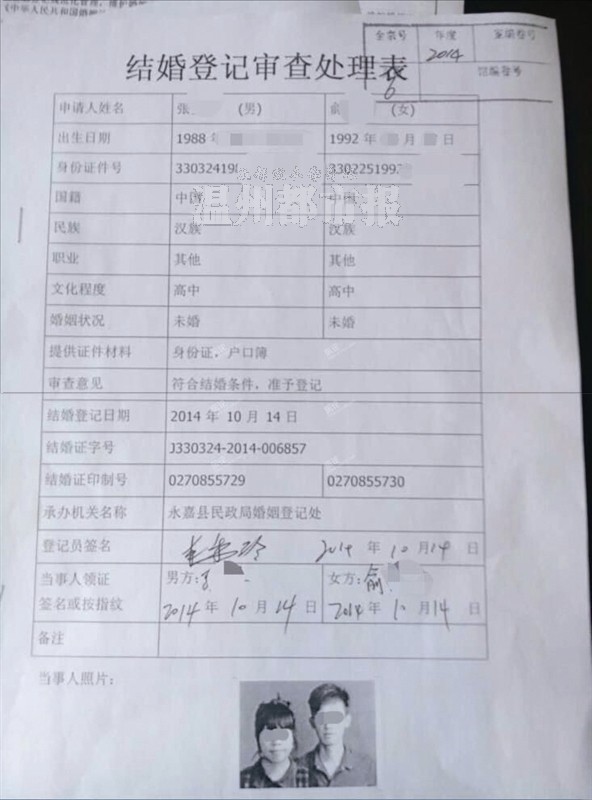 《中华人民共和国婚姻
全宗号 年度 室编卷号
2014
馆编卷号
6
结婚登记审查处理表
申请人姓名 张 (男) 俞 (女)
出生日期 1988 年 1992 年 月 日
身份证件号 33032419 3302251992
温州都市报
国籍 中国 中国
民族 汉族 汉族
职业 其他 其他
文化程度 高中 高中
婚姻状况 未婚 未婚
提供证件材料 身份证，户口簿
审查意见 符合结婚条件，准予登记
结婚登记日期 2014 年 10 月 14 日
结婚证字号 J330324-2014-006857
结婚证印制号 0270855729 0270855730
承办机关名称 永嘉县民政局婚姻登记处
登记员签名 2014 年 10 月 14 日
当事人领证 男方： 女方：俞
签名或按指纹 2014 年 10 月 14 日 2014 年 10 月 14 日
备注
当事人照片：